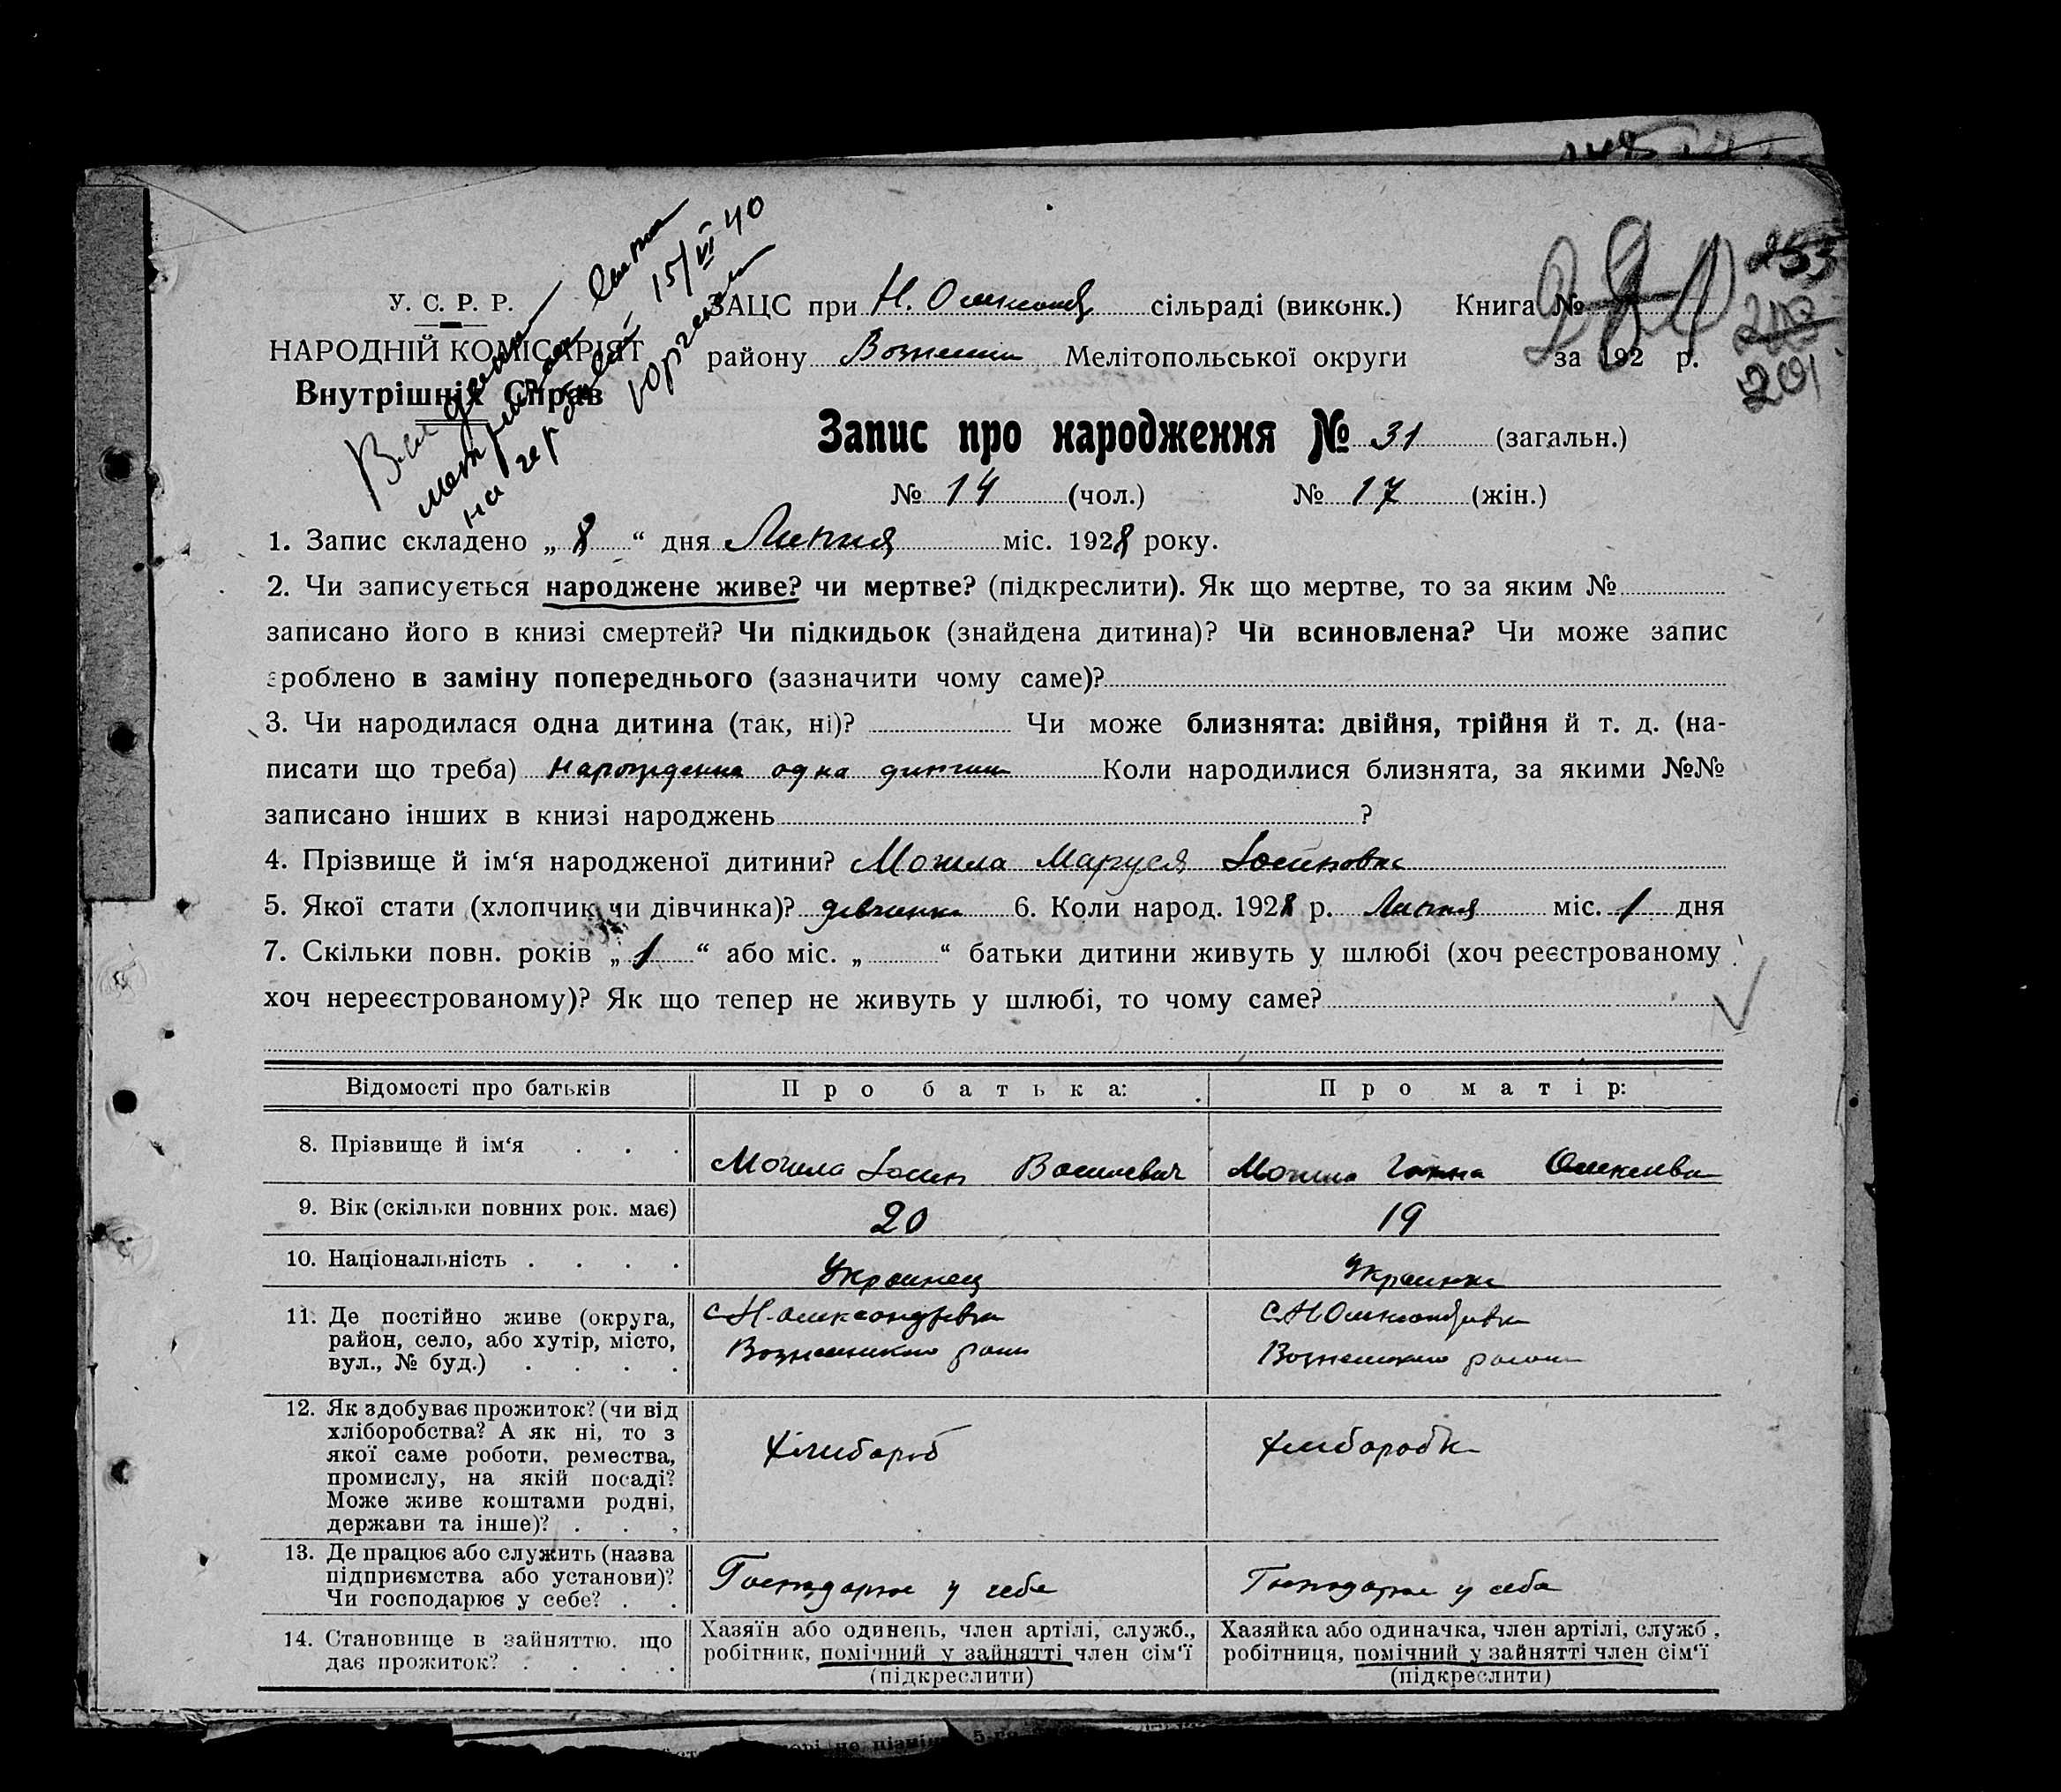 У. С. Р. Р.
НАРОДНІЙ КОМІСАРІЯТ
Внутрішніх Справ
15/VI 40
ЗАЦС при Н. сільраді (виконк.) Книга №
району Мелітопольської округи за 192 р.
253
201
Запис про народження № 31 (загальн.)
№ 14 (чол.) № 17 (жін.)
1. Запис складено „ 8 “ дня Липня міс. 1928 року.
2. Чи записується народжене живе? чи мертве? (підкреслити). Як що мертве, то за яким №
записано його в книзі смертей? Чи підкидьок (знайдена дитина)? Чи всиновлена? Чи може запис
зроблено в заміну попереднього (зазначити чому саме)?
3. Чи народилася одна дитина (так, ні)? Чи може близнята: двійня, трійня й т. д. (на-
писати що треба) одна Коли народилися близнята, за якими №№
записано інших в книзі народжень ?
4. Прізвище й ім‘я народженої дитини? Могила Маруся
5. Якої стати (хлопчик чи дівчинка)? дівчинка 6. Коли народ. 1928 р. Липня міс. 1 дня
7. Скільки повн. років „ 1 “ або міс. „ “ батьки дитини живуть у шлюбі (хоч реєстрованому
хоч нереєстрованому)? Як що тепер не живуть у шлюбі, то чому саме?
Відомості про батьків Про батька: Про матір:
8. Прізвище й ім‘я . . . Могила Могила Ганна
9. Вік (скільки повних рок. має) 20 19
10. Національність . . . . Украинец Украинка
11. Де постійно живе (округа,
район, село, або хутір, місто,
вул., № буд.) . . . .
12. Як здобуває прожиток? (чи від
хліборобства? А як ні, то з
якої саме роботи, ремества,
промислу, на якій посаді?
Може живе коштами родні,
держави та інше)? . . .
13. Де працює або служить (назва
підприємства або установи)?
Чи господарює у себе? . . Господарює у себе Господарює у себе
14. Становище в зайняттю, що
дає прожиток? . . . .
Хазяїн або одинець, член артілі, служб.,
робітник, помічний у зайнятті член сім‘ї
(підкреслити)
Хазяйка або одиначка, член артілі, служб.,
робітниця, помічний у зайнятті член сім‘ї
(підкреслити)